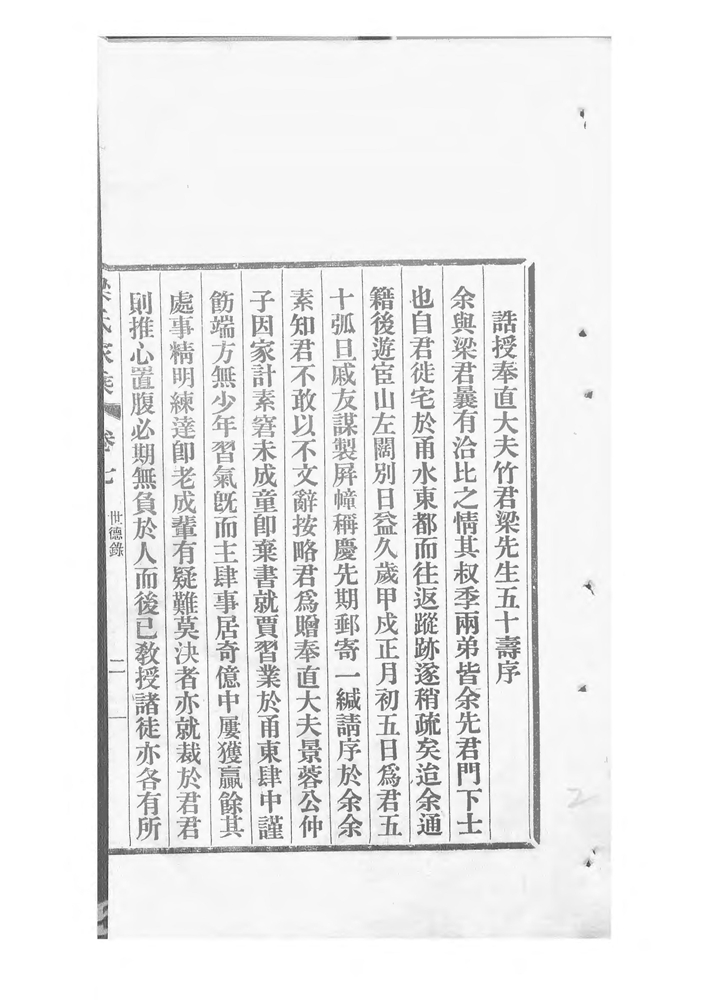 誥授奉直大夫竹君梁先生五十壽序
余與梁君曩有洽比之情其叔季兩弟皆余先君門下士
也自君徙宅於甬水東都而往返蹤跡遂稍疏矣迨余通
籍後遊宦山左闊別日益久歲甲戌正月初五日爲君五
十弧旦戚友謀製屛幛稱慶先期郵寄一緘請序於余余
素知君不敢以不文辭按略君爲贈奉直大夫景蓉公仲
子因家計素窘未成童卽棄書就賈習業於甬東肆中謹
飭端方無少年習氣旣而主肆事居奇億中屢獲贏餘其
處事精明練達卽老成輩有疑難莫決者亦就裁於君君
則推心置腹必期無負於人而後已敎授諸徒亦各有所
梁氏家乘 卷七 世德錄 二一
2